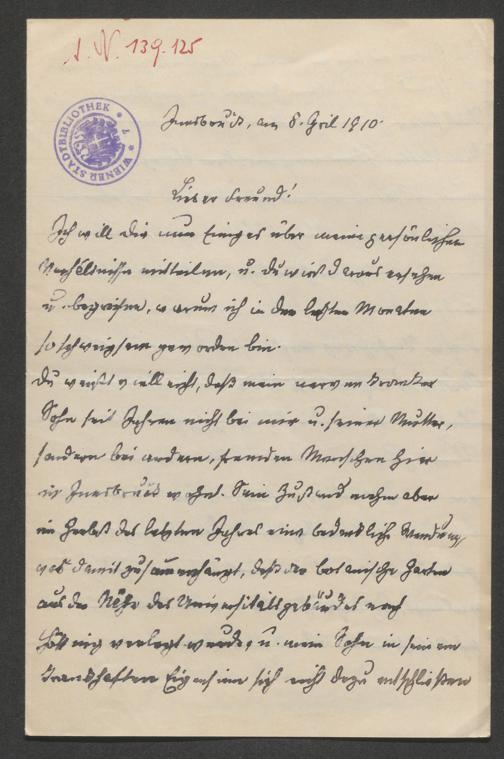 J. N. 139.125
WIENER STADTBIBLIOTHEK
Innsbruck, am 8. April 1910.
Lieber Freund!
Ich will Dir nun Einiges über meine persönlichen
Verhältnisse mitteilen, u. Du wirst daraus ersehen
u. begreifen, warum ich in den letzten Monaten
so schweigsam geworden bin.
Du weißt vielleicht, daß mein nervenkranker
Sohn seit Jahren nicht bei mir u. seiner Mutter,
sondern bei andern, fremden Menschen hier
in Innsbruck wohnt. Sein Zustand nahm aber
im Herbst des letzten Jahres eine bedenkliche Wendung,
was damit zusammenhängt, daß der botanische Garten
aus der Nähe des Universitätsgebäudes nach
Hötting verlegt wurde, u. mein Sohn in seinem
krankhaften Eigensinn sich nicht dazu entschließen